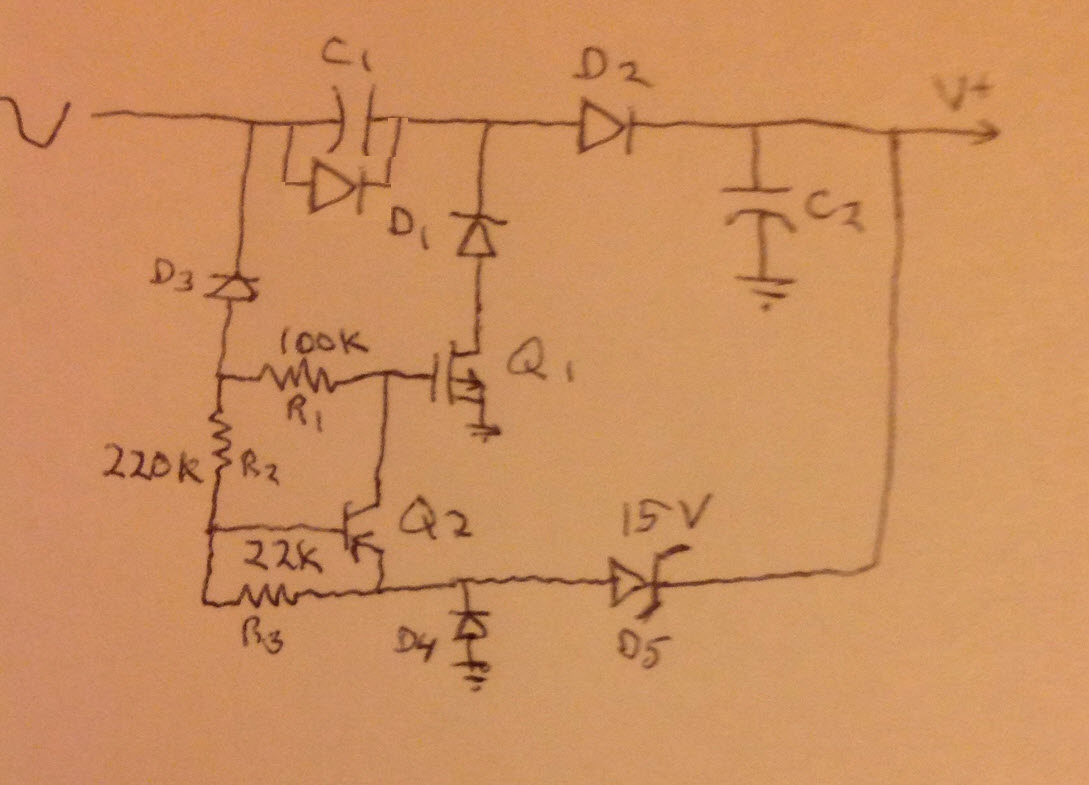 C1
D2
V+
D1
C2
D3
100K
R1
Q1
220K
R2
Q2
15V
22K
R3
D4
D5